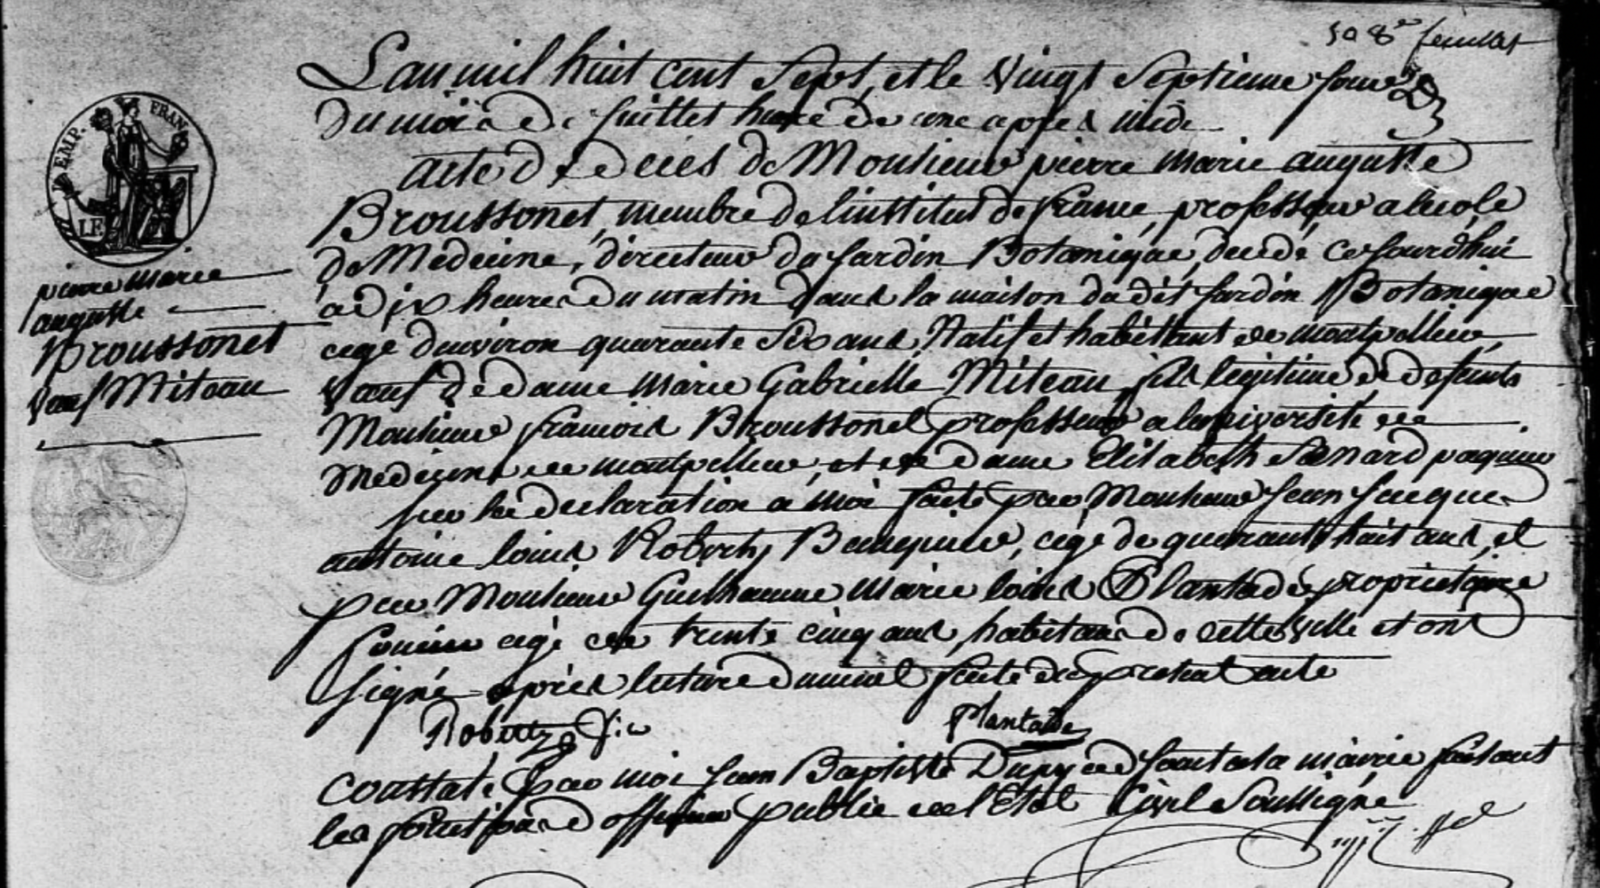 50 8e feuillet
L'an mil huit cent sept, et le vingt septieme jour
du mois de juillet heure de une apres midi
EMP. FRAN
LE
acte de decés de Monsieur pierre marie auguste
Broussonet, membre de l'institut de france, professeur a lecole
de Médecine, directeur du jardin Botanique, decedé cejourdhui
à dix heures du matin dans la maison dudit jardin Botanique
pierre marie
auguste
Broussonet
veuf Miteau
agé denviron quarante six ans, Natif et habittant de montpellier,
veuf de dame marie Gabrielle Miteau, fils legitime de defunts
Monsieur francois Broussonet professeur a luniversité de
Medecine de montpellier, et de dame Elisabeth Senard paquier
sur la declaration à moi faite par Monsieur Jean Jacques
antoine louis Roberty, agé de quarante huit ans, et
par Monsieur Guilhaume marie louis Plantade proprietaire
foncier agé de trente cinq ans habitans de cette ville et ont
signé après lecture dumat faite du present acte
Roberty Plantade
Constaté par moi jean Baptiste Dupy adjoint a la mairie faisant
les fonctions d officier public de l'Etat Civil Soussigné